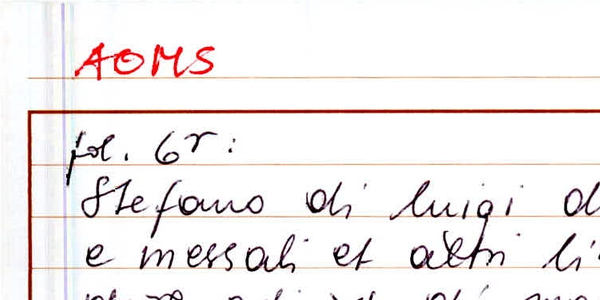 AOMS
fol. 6r:
Stefano di luigi d
e messali et altri li